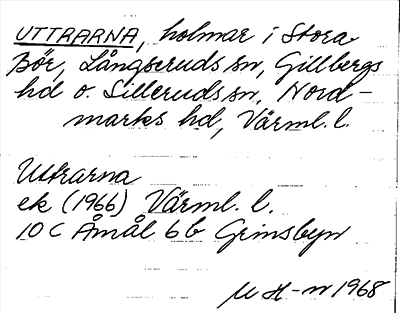 UTTRARNA, holmar i Stora
Bör, Långseruds sn, Gillbergs
hd o. Silleruds sn, Nord-
marks hd, Värml. l.
Uttrarna
ek (1966) Värml. l.
10 C Åmål 6 b Grinsbyn
M H-n 1968